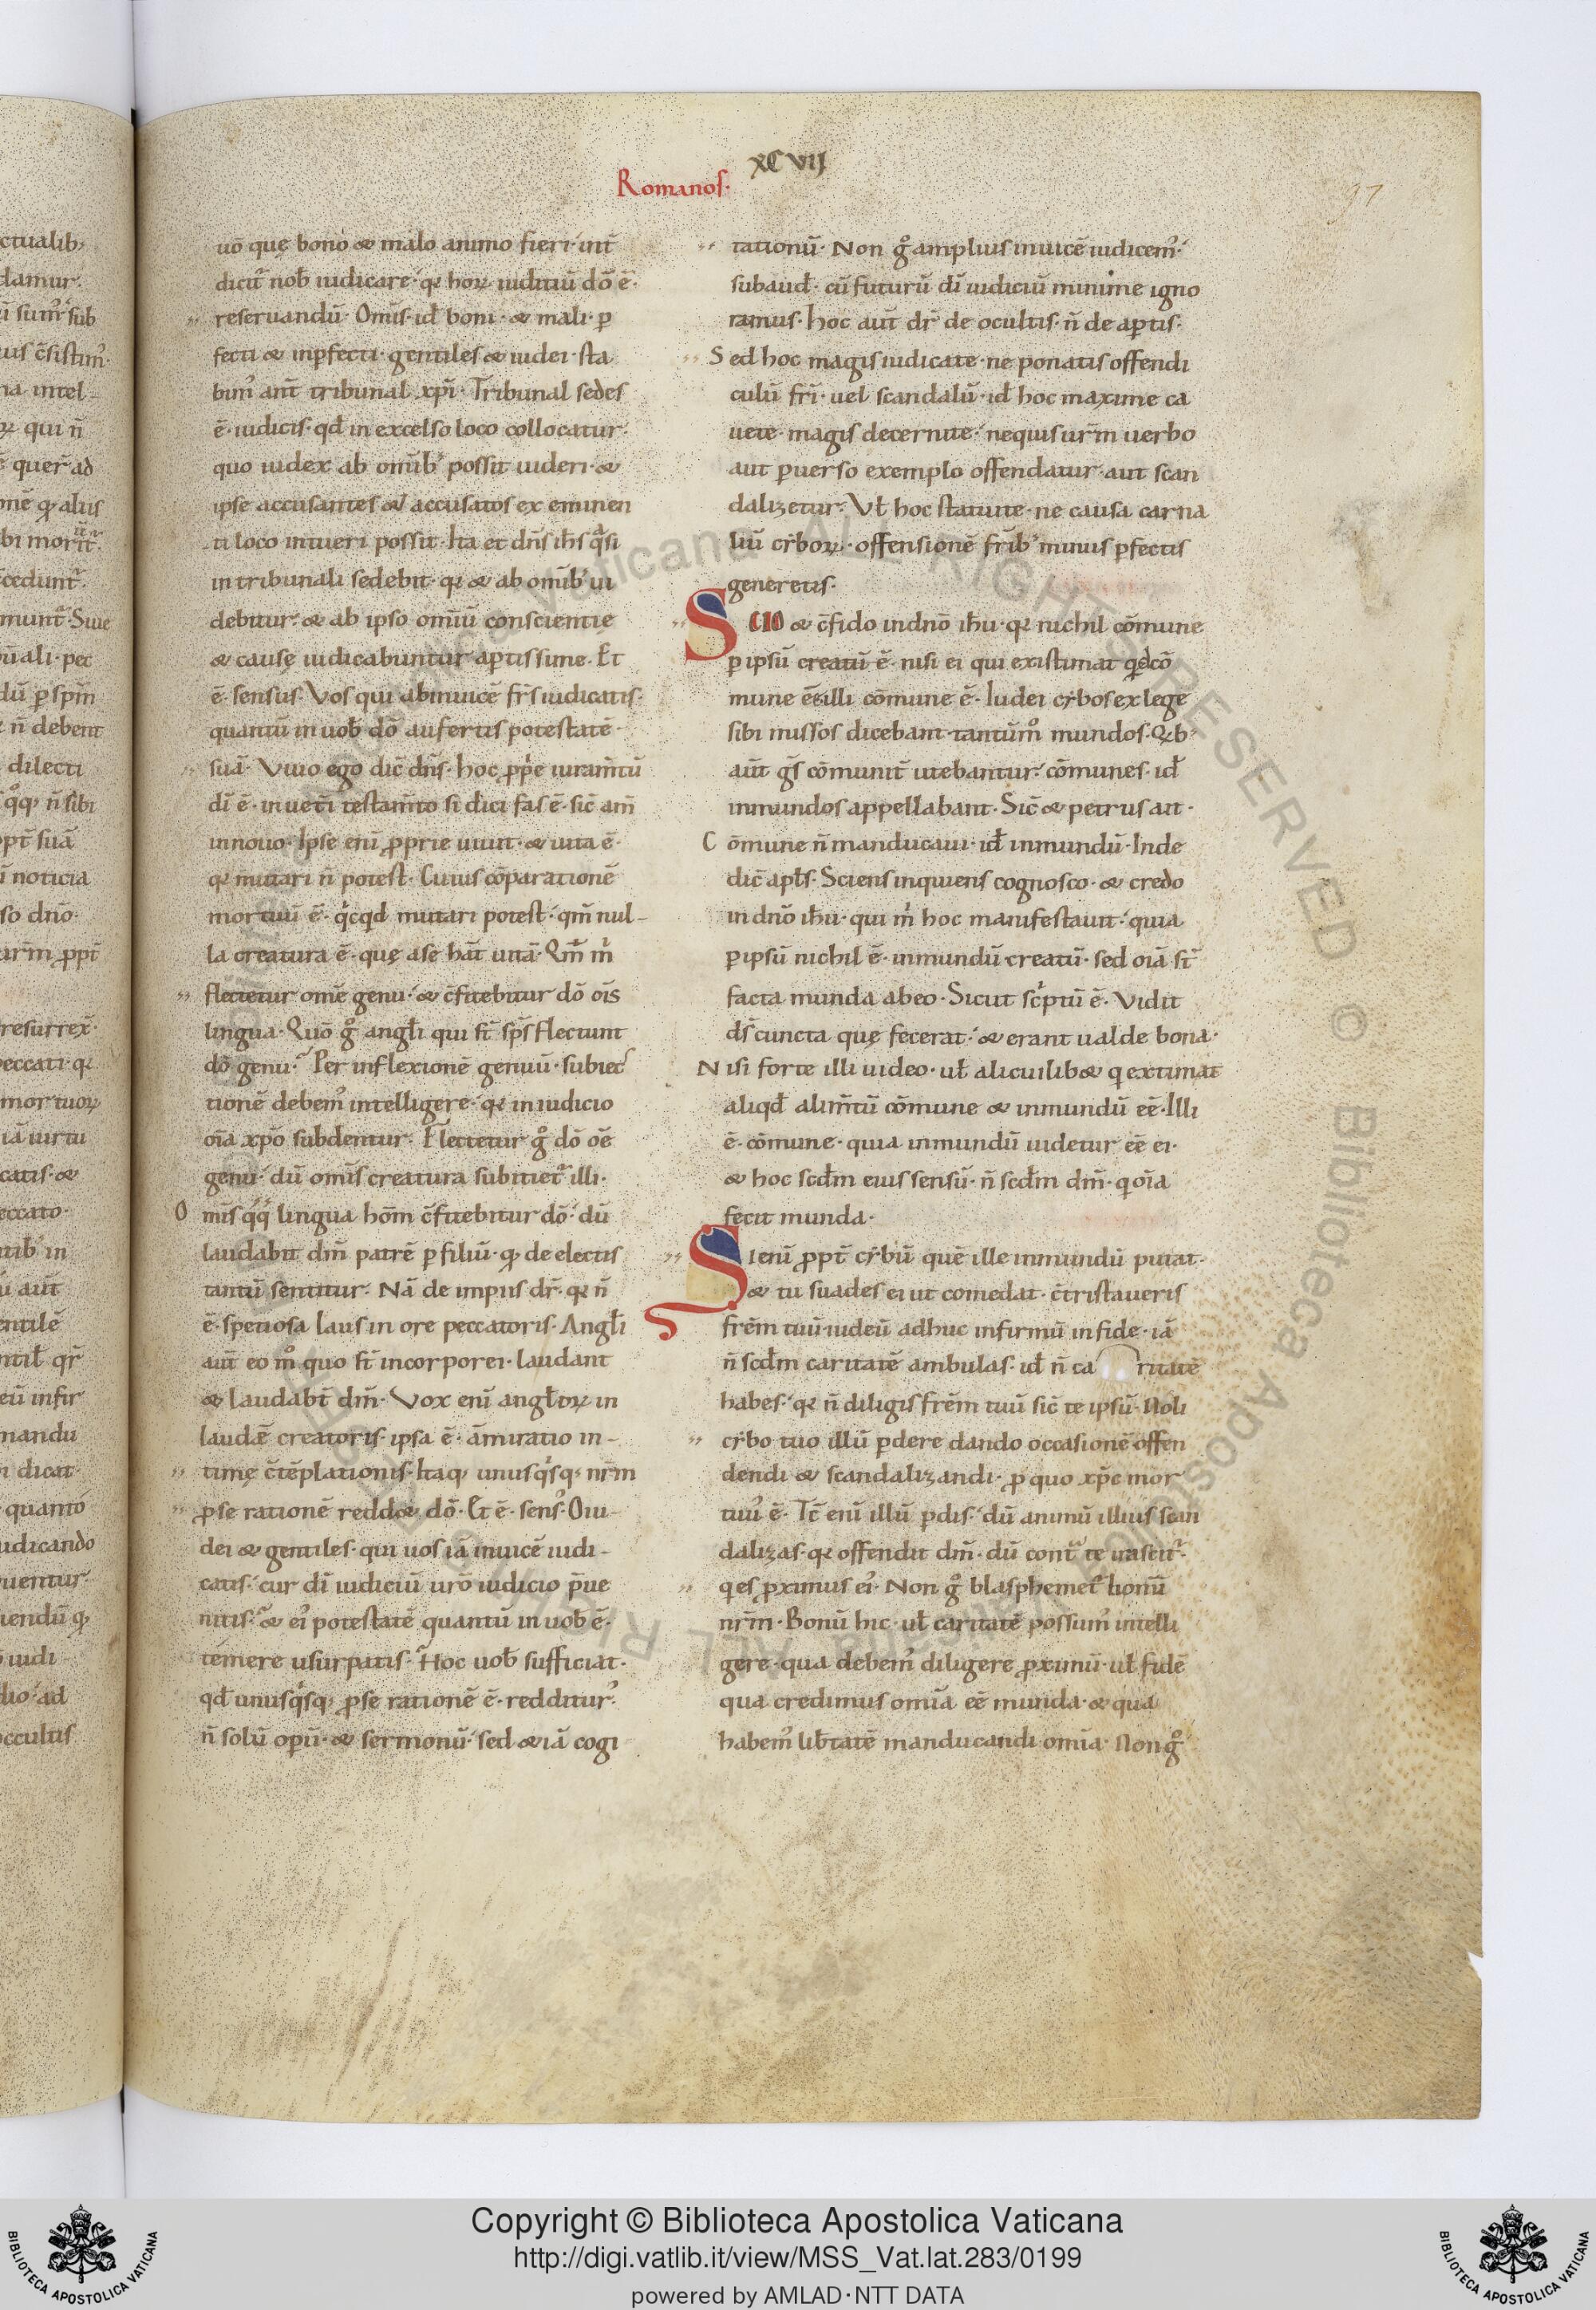 XCVIJ
Romanos·
97
uō quę bono & malo animo fieri· int̄
dicit᷑ nob̄ iudicare· qꝛ hoꝝ iuditiū dō ē·
reseruandū· Om̄s· id̄ boni· & mali· ꝑ
fecti & inꝑfecti· gentiles & iudei· sta
bim᷒ ant̄ tribunal xp̄i· Tribunal sedes
ē· iudicis· qd̄ in excelso loco collocatur·
quo iudex ab omīb᷒ possit uideri· &
ipse accusantes & accusatos ex eminen
ti loco intueri possit· Ita et dn̄s ih̄s q̄si
in tribunali sedebit· qꝛ & ab omīb᷒ ui
debitur· & ab ipso omīū conscientię
& causę iudicabuntur aptissime· Et
ē· sensus· Vos qui abinuicē fr̄s iudicatis·
quantū in uob̄ dō aufertis potestatē
suā· Viuo ego dic̄ dn̄s· hoc ꝓp̄e iuram̄tū
dī ē· in uet̄i testam̄to si dici fas ē· sic̄ am̄
in nouo· Ipse enī ꝓprie uiuit· & uita ē·
qꝛ mutari n̄ potest· Cuius cōparationē
mortuū ē· qͥcqd̄ mutari potest· qm̄ nul-
la creatura ē· quę a se hāt uitā· Qm̄ mͥ
flectetur omē genu· & c̄fitebitur dō ois̄
lingua· Quō g̊ angl̄i qui st̄ sp̄s flectunt
dō genu· Per inflexionē genuū· subiec
tionē debem᷒ intelligere· qꝛ in iudicio
oīa xp̄o subdentur· Flectetur g̊ dō oē
genu· dū omīs creatura subitiet᷑ illi·
Omīs q̄q̄ lingua hom̄ c̄fitebitur dō· dū
laudabit dm̄ patrē ꝑ filiū· qđ de electis
tantū sentitur· Nā de impiis dr̄· qꝛ n̄
ē· spetiosa laus in ore peccatoris· Angl̄i
aut̄ eo m̊ quo st̄ incorporei· laudant
& laudabt̄ dm̄· Vox enī angl̄oꝝ in
laudē creatoris· ipsa ē· āmiratio in-
timę c̄tēplationis· Itaq; unusqͥsq; nr̄m
ꝓ se rationē redd& dō· Et ē· sens᷒· O iu-
dei & gentiles· qui uos iā inuicē iudi-
catis· cur dī iudiciū uro iudicio p̄ue
nitis· & ei᷒ potestatē quantū in uob̄ ē·
temere usurpatis· Hoc uob̄ sufficiat·
qd̄ unusqͥsq; ꝓ se rationē ē· redditur᷒·
n̄ solū oꝑū· & sermonū· sed & iā cogi
tationū· Non g̊ amplius inuicē iudicem᷒·
subaud̄· cū futurū dī iudiciū minime igno
ramus· hoc aut̄ dr̄ de ocultis· n̄ de aꝑtis·
Sed hoc magis iudicate· ne ponatis offendi
culū fr̄i· uel scandalū· id̄ hoc maxime ca
uete· magis decernite· nequis ur̄m uerbo
aut ꝑuerso exemplo offendatur· aut scan
dalizetur· Vl̄ hoc statuite· ne causa carna
liū cyboꝝ· offensionē frīb᷒ minus ꝑfectis
generetis·
SCIO & c̄fido in dnō ih̄u· qꝛ nichil cōmune
ꝑ ipsū creatū ē· nisi ei qui existimat qd̄ cō
mune ēē illi cōmune ē· Iudei cybos ex lege
sibi missos dicebant· tantūm̊ mundos· Qꝫb᷒
aut̄ gs̄ cōmunit̄ utebantur· cōmunes· id̄
inmundos appellabant· Sic̄ & petrus ait·
Cōmune n̄ manducaui· id̄ inmundū· Inde
dic̄ apl̄s· Sciens inquiens cognosco· & credo
in dnō ih̄u· qui mͥ hoc manifestauit· quia
ꝑ ipsū nichil ē· inmundū creatū· sed oīa st̄
facta munda ab eo· Sicut scͥptū ē· Vidit
ds̄ cuncta quę fecerat· & erant ualde bona·
Nisi forte illi uideo· ul̄ alicui lib& q extimat
aliqd̄ alim̄tū cōmune & inmundū eē· Illi
ē· cōmune· quia inmundū uidetur eē ei·
& hoc scd̄m eius sensū· n̄ scd̄m dm̄· q oīa
fecit munda·
Si enī ꝓpt̄ cybū quē ille inmundū putat·
& tu suades ei ut comedat· c̄tristaueris
frēm tuū iudeū adhuc infirmū in fide· iā
n̄ scd̄m caritatē ambulas· id̄ n̄ ca ritatē
habes· qꝛ n̄ diligis frēm tuū sic̄ te ipsū· Noli
cybo tuo illū ꝑdere dando occasionē offen
dendi & scandalizandi· ꝓ quo xp̄c mor
tuu᷒ ē· Tc̄ enī illū ꝑdis· dū animū illius scan
dalizas· qꝛ offendit dm̄· dū contͣ te irascit᷑·
q es ꝓximus ei᷒· Non g̊ blasphemet᷑ bonū
nr̄m· Bonū hic· ul̄ caritatē possum᷒ intelli
gere· qua debem᷒ diligere ꝓximū· ul̄ fidē
qua credimus omīa eē munda· & qua
habem᷒ lib̄tatē manducandi omīa· Non g̊
Copyright © Biblioteca Apostolica Vaticana
http://digi.vatlib.it/view/MSS_Vat.lat.283/0199
powered by AMLAD·NTT DATA